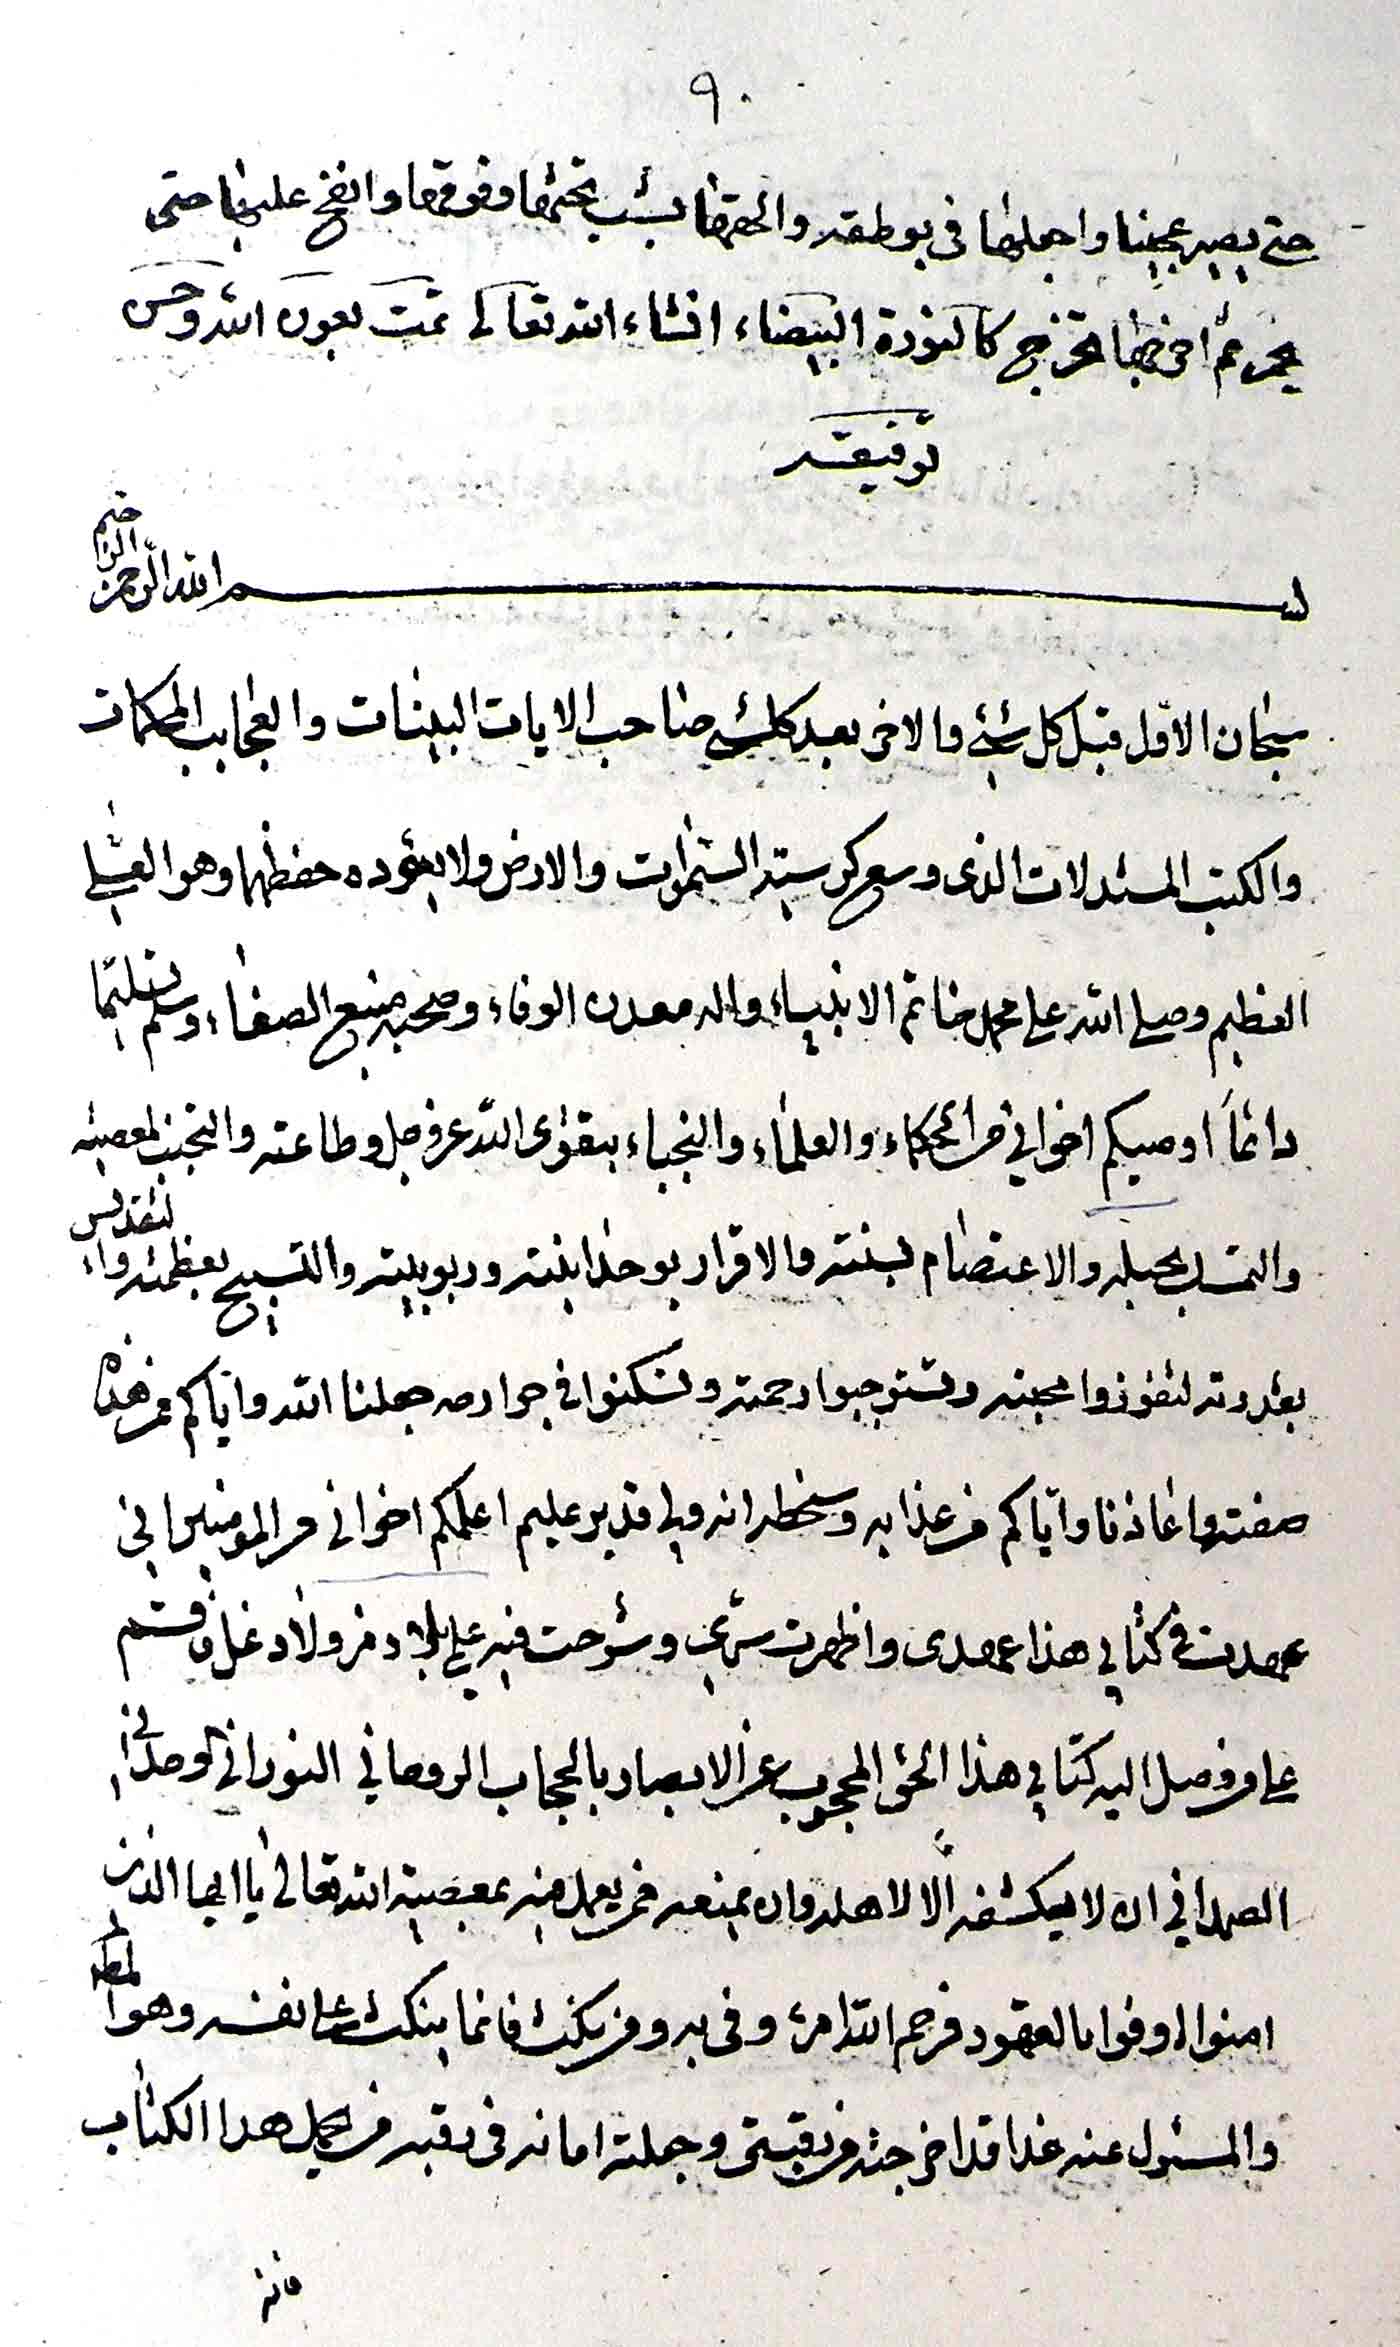 ٩٠
حتى يصير عجينا واجعلها فى بوطقه والحقها بشب تحتها وفوقها وانفخ عليها حتى
يحمر ثم اخرجها تخرج كالنورة البيضاء انشاء الله تعالى تمت بعون الله وحسن
توفيقه
بسم الله الرحمن الرحيم
سبحان الاول قبل كل شئ والاخر بعد كل شئ صاحب الايات البينات والعجايب المحكمات
والكتب المنزلات الذى وسع كرسيه السموات والارض ولا يئوده حفظهما وهو العلى
العظيم وصلى الله على محمد خاتم الانبياء واله معدن الوفاء وصحبه منبع الصفاء وسلم تسليما
دائماً اوصيكم اخوانى من الحكماء والعلماء والنجباء بتقوى الله عز وجل وطاعته والتجنب لمعصيته
والتمسك بحبله والاعتصام بسنته والاقرار بوحدانيته وربوبيته والتسبيح بعظمته والتقديس
بقدرته لتفوزوا بمحبته وتستوجبوا رحمته وتسكنوا فى جواره جعلنا الله واياكم ممن هذه
صفته واعاذنا واياكم من عذابه وسخطه انه ولى قدير عليم اعلمكم اخوانى من المومنين انى
عهدت فى كتابى هذا عهدى واظهرت سرى وشرحت فيه على بلاد من ولاد
على من وصل اليه كتابى هذا الحق المحجوب عن الابصار بالحجاب الروحانى النورانى الوحدانى
الصمدانى ان لا يكشفه الا لاهله وان يمنعه ممن يعمل منه بمعصية الله تعالى يا ايها الذين
امنوا اوفوا بالعقود فرحم الله امرء وفى به ومن نكث فانما ينكث على نفسه وهو المطالب
والمسئول عنه غدا قد اخرجته من رقبتى وجعلته امانة فى رقبة من يحمل هذا الكتاب
فانه